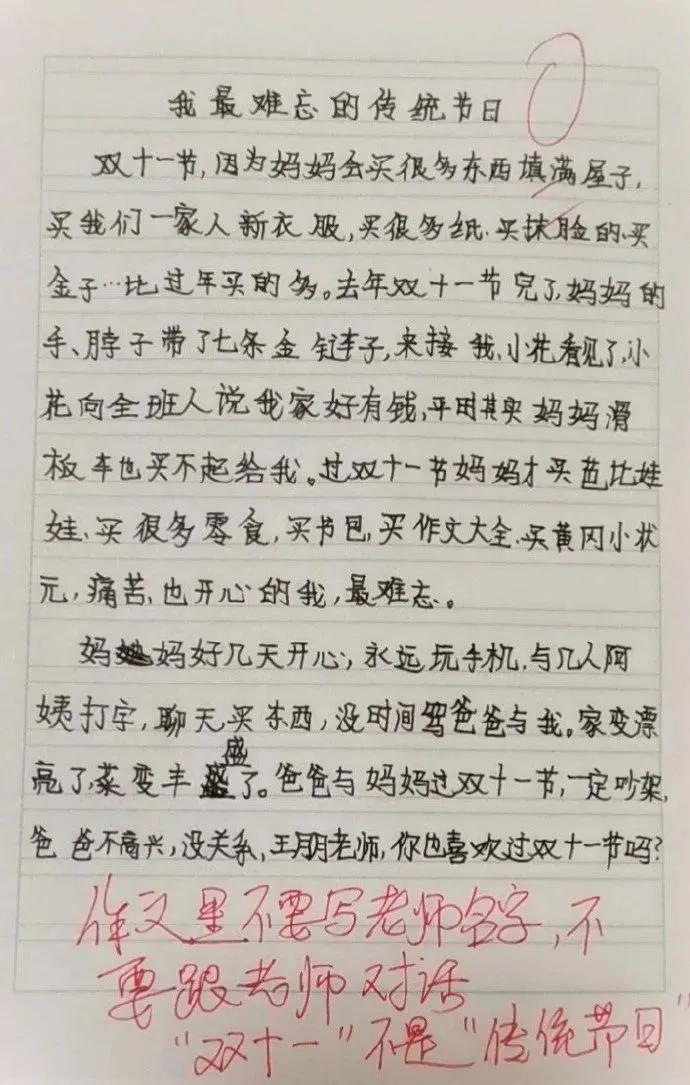 我最难忘的传统节日
双十一节,因为妈妈会买很多东西填满屋子,
买我们一家人新衣服,买很多纸、买抹脸的、买
金子…比过年买的多。去年双十一节完了,妈妈的
手、脖子带了七条金链子,来接我,小花看见了,小
花向全班人说我家好有钱,平时其实妈妈滑
板车也买不起给我。过双十一节妈妈才买芭比娃
娃、买很多零食,买书包,买作文大全、买黄冈小状
元,痛苦、也开心的我,最难忘。
妈妈好几天开心,永远玩手机,与几人阿
姨打字,聊天买东西,没时间骂爸爸与我。家变漂
亮了,菜变丰盛了。爸爸与妈妈过双十一节,一定吵架,
爸爸不高兴,没关系,王朋老师,你也喜欢过双十一节吗?
作文里不要写老师名字,不
要跟老师对话
"双十一"不是"传统节日"